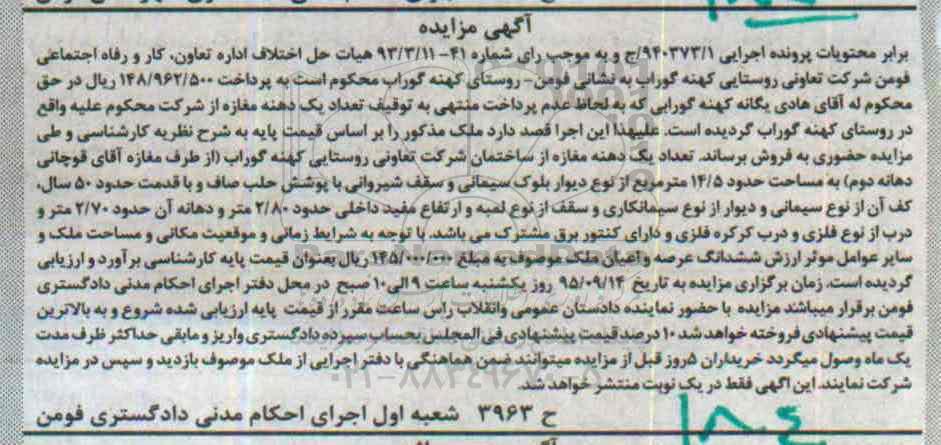 آگهی مزایده
برابر محتویات پرونده اجرایی ۹۴۰۳۷۳/۱/ج و به موجب رای شماره ۴۱- ۹۳/۳/۱۱ هیات حل اختلاف اداره تعاون، کار و رفاه اجتماعی
فومن شرکت تعاونی روستایی کهنه گوراب به نشانی فومن- روستای کهنه گوراب محکوم است به پرداخت ۱۴۸/۹۶۲/۵۰۰ ریال در حق
محکوم له آقای هادی یگانه کهنه گورابی که به لحاظ عدم پرداخت منتهی به توقیف تعداد یک دهنه مغازه از شرکت محکوم علیه واقع
در روستای کهنه گوراب گردیده است. علیهذا این اجرا قصد دارد ملک مذکور را بر اساس قیمت پایه به شرح نظریه کارشناسی و طی
مزایده حضوری به فروش برساند. تعداد یک دهنه مغازه از ساختمان شرکت تعاونی روستایی کهنه گوراب (از طرف مغازه آقای قوچانی
دهانه دوم) به مساحت حدود ۱۴/۵ مترمربع از نوع دیوار بلوک سیمانی و سقف شیروانی با پوشش حلب صاف و با قدمت حدود ۵۰ سال،
کف آن از نوع سیمانی و دیوار از نوع سیمانکاری و سقف از نوع لمبه و ارتفاع مفید داخلی حدود ۲/۸۰ متر و دهانه آن حدود ۲/۷۰ متر و
درب از نوع فلزی و درب کرکره فلزی و دارای کنتور برق مشترک می باشد. با توجه به شرایط زمانی و موقعیت مکانی و مساحت ملک و
سایر عوامل موثر ارزش ششدانگ عرصه و اعیان ملک موصوف به مبلغ ۱۴۵/۰۰۰/۰۰۰ ریال بعنوان قیمت پایه کارشناسی برآورد و ارزیابی
گردیده است. زمان برگزاری مزایده به تاریخ ۹۵/۰۹/۱۴ روز یکشنبه ساعت ۹ الی ۱۰ صبح در محل دفتر اجرای احکام مدنی دادگستری
فومن برقرار میباشند مزایده با حضور نماینده دادستان عمومی وانقلاب راس ساعت مقرر از قیمت پایه ارزیابی شده شروع و به بالاترین
قیمت پیشنهادی فروخته خواهد شد ۱۰ درصد قیمت پیشنهادی فی المجلس بحساب سپرده دادگستری واریز و مابقی حداکثر ظرف مدت
یک ماه وصول میگردد خریداران ۵روز قبل از مزایده میتوانند ضمن هماهنگی با دفتر اجرایی از ملک موصوف بازدید و سپس در مزایده
شرکت نمایند. این آگهی فقط در یک نوبت منتشر خواهد شد.
ح ۳۹۶۳ شعبه اول اجرای احکام مدنی دادگستری فومن